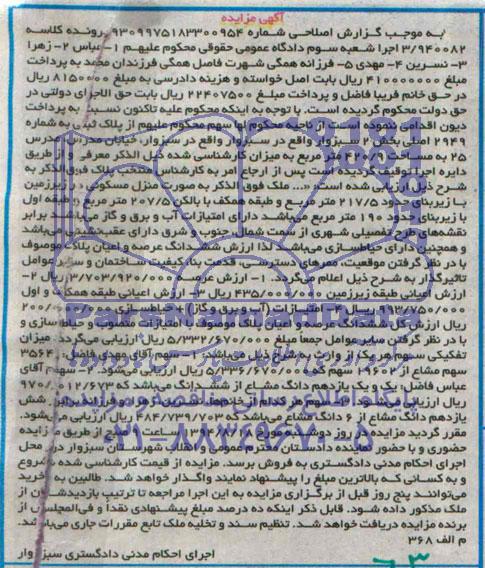 آگهی مزایده
به موجب گزارش اصلاحی شماره ۹۳۰۹۹۷۵۱۸۳۳۰۰۹۵۴ پرونده کلاسه
۳/۹۴۰۰۸۲ اجرا شعبه سوم دادگاه عمومی حقوقی محکوم علیهم ۱- عباس ۲- زهرا
۳- نسرین ۴- مهدی ۵- فرزانه همگی شهرت فاضل همگی فرزندان محمد به پرداخت
مبلغ ۴۱۰۰۰۰۰۰۰ ریال بابت اصل خواسته و هزینه دادرسی به مبلغ ۸۱۵۰۰۰۰ ریال
در حق خانم فریبا فاضل و پرداخت مبلغ ۲۲۴۰۷۵۰۰ ریال بابت حق الاجرای دولتی در
حق دولت محکوم گردیده است. با توجه به اینکه محکوم علیه تاکنون نسبت به پرداخت
دیون اقدامی ننموده است از ناحیه محکوم لها سهم محکوم علیهم از پلاک ثبتی به شماره
۲۹۴۹ اصلی بخش ۲ سبزوار واقع در سبزوار واقع در سبزوار، خیابان مدرس، مدرس
۲۵ به مساحت متر مربع به میزان کارشناسی شده ذیل الذکر معرفی و از طریق
دایره اجرا توقیف گردیده است پس از ارجاع امر به کارشناسی منتخب پلاک فوق الذکر به
شرح ذیل ارزیابی شده است «... ملک فوق الذکر به صورت منزل مسکونی در زیرزمین
با زیربنای حدود ۲۱۷/۵ متر مربع و طبقه همکف با بالکن ۲۰۷/۵ متر مربع و طبقه اول
با زیربنای حدود ۱۹۰ متر مربع میباشد دارای امتیازات آب و برق و گاز می باشد برابر
نقشه های طرح تفصیلی شهری از سمت شمال جنوب و شرق دارای عقب نشینی می باشد
و همچنین دارای حیاط سازی می باشد. لذا ارزش ششدانگ عرصه و اعیان پلاک موصوف
با در نظر گرفتن موقعیت، ممرهای دسترسی، قدمت بنا، کیفیت ساختمان و سایر عوامل
تاثیرگذار به شرح ذیل اعلام می گردد. ۱- ارزش عرصه ۳/۷۰۳/۹۲۰/۰۰۰ ریال ۲-
ارزش اعیانی طبقه زیرزمین ۴۳۵/۰۰۰/۰۰۰ ریال ۳- ارزش اعیانی طبقه همکف و اول
۹۹۳/۷۵۰/۰۰۰ ریال ۴- امتیازات (آب و برق و گاز) و حیاط سازی ۲۰۰/۰۰۰/۰۰۰
ریال ارزش کل ششدانگ عرصه و اعیان پلاک موصوف با امتیازات منصوب و حیاط سازی و
با در نظر گرفتن سایر عوامل جمعا مبلغ ۵/۳۳۲/۶۷۰/۰۰۰ ریال ارزیابی می گردد. میزان
تفکیکی سهم هر یک از وراث به شرح ذیل می باشد: ۱- سهم آقای مهدی فاضل: ۳۵۶۴
سهم مشاع از ۱۹۶۰۲ سهم که ریال ارزیابی می شود. ۲- سهم آقای
عباس فاضل: یک و یک یازدهم دانگ مشاع از ششدانگ می باشد که ۹۷۰/۰۱۲/۶۷۳
ریال ارزیابی سهم هر کدام از خانم ها فرزانه، شش
یازدهم دانگ مشاع از ۶ دانگ مشاع می باشد که ۴۸۴/۷۳۹/۷۰۳ ریال ارزیابی می شود.
مقرر گردید مزایده در روز دوشنبه مورخ ساعت صبح از طریق مزایده
حضوری و با حضور نماینده دادستان محترم عمومی و انقلاب شهرستان سبزوار در محل
اجرای احکام مدنی دادگستری به فروش برسد. مزایده از قیمت کارشناسی شده شروع
و به کسانی که بالاترین مبلغ را پیشنهاد نمایند واگذار خواهد شد. طالبین به خرید
می توانند پنج روز قبل از برگزاری مزایده به این اجرا مراجعه تا ترتیب بازدیدشان از
ملک مذکور داده شود. قابل ذکر اینکه ده درصد مبلغ پیشنهادی نقدا و فی المجلس از
برنده مزایده دریافت خواهد شد. تنظیم سند و تخلیه ملک تابع مقررات جاری می باشد.
م الف ۳۶۸
اجرای احکام مدنی دادگستری سبزوار
۰۲۱-۸۸۳۴۹۶۷۰-۵